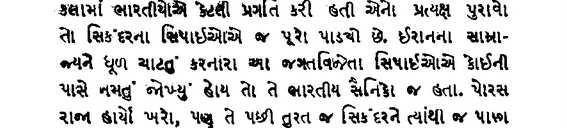 કલામાં ભારતીયોએ કેટલી પ્રગતિ કરી હતી એનો પ્રત્યક્ષ પુરાવો
તો સિકંદરના સિપાઈઓએ જ પૂરો પાડયો છે. ઈરાનના સામ્રા-
જ્યને ધૂળ ચાટતું કરનારા આ જગતવિજેતા સિપાઈઓએ કોઈની
પાસે નમતું જોખ્યું હોય તો તે ભારતીય સૈનિકો જ હતા. પોરસ
રાજા હાર્યો ખરો, પણ તે પછી તુરત જ સિકંદરને ત્યાંથી જ પાછા